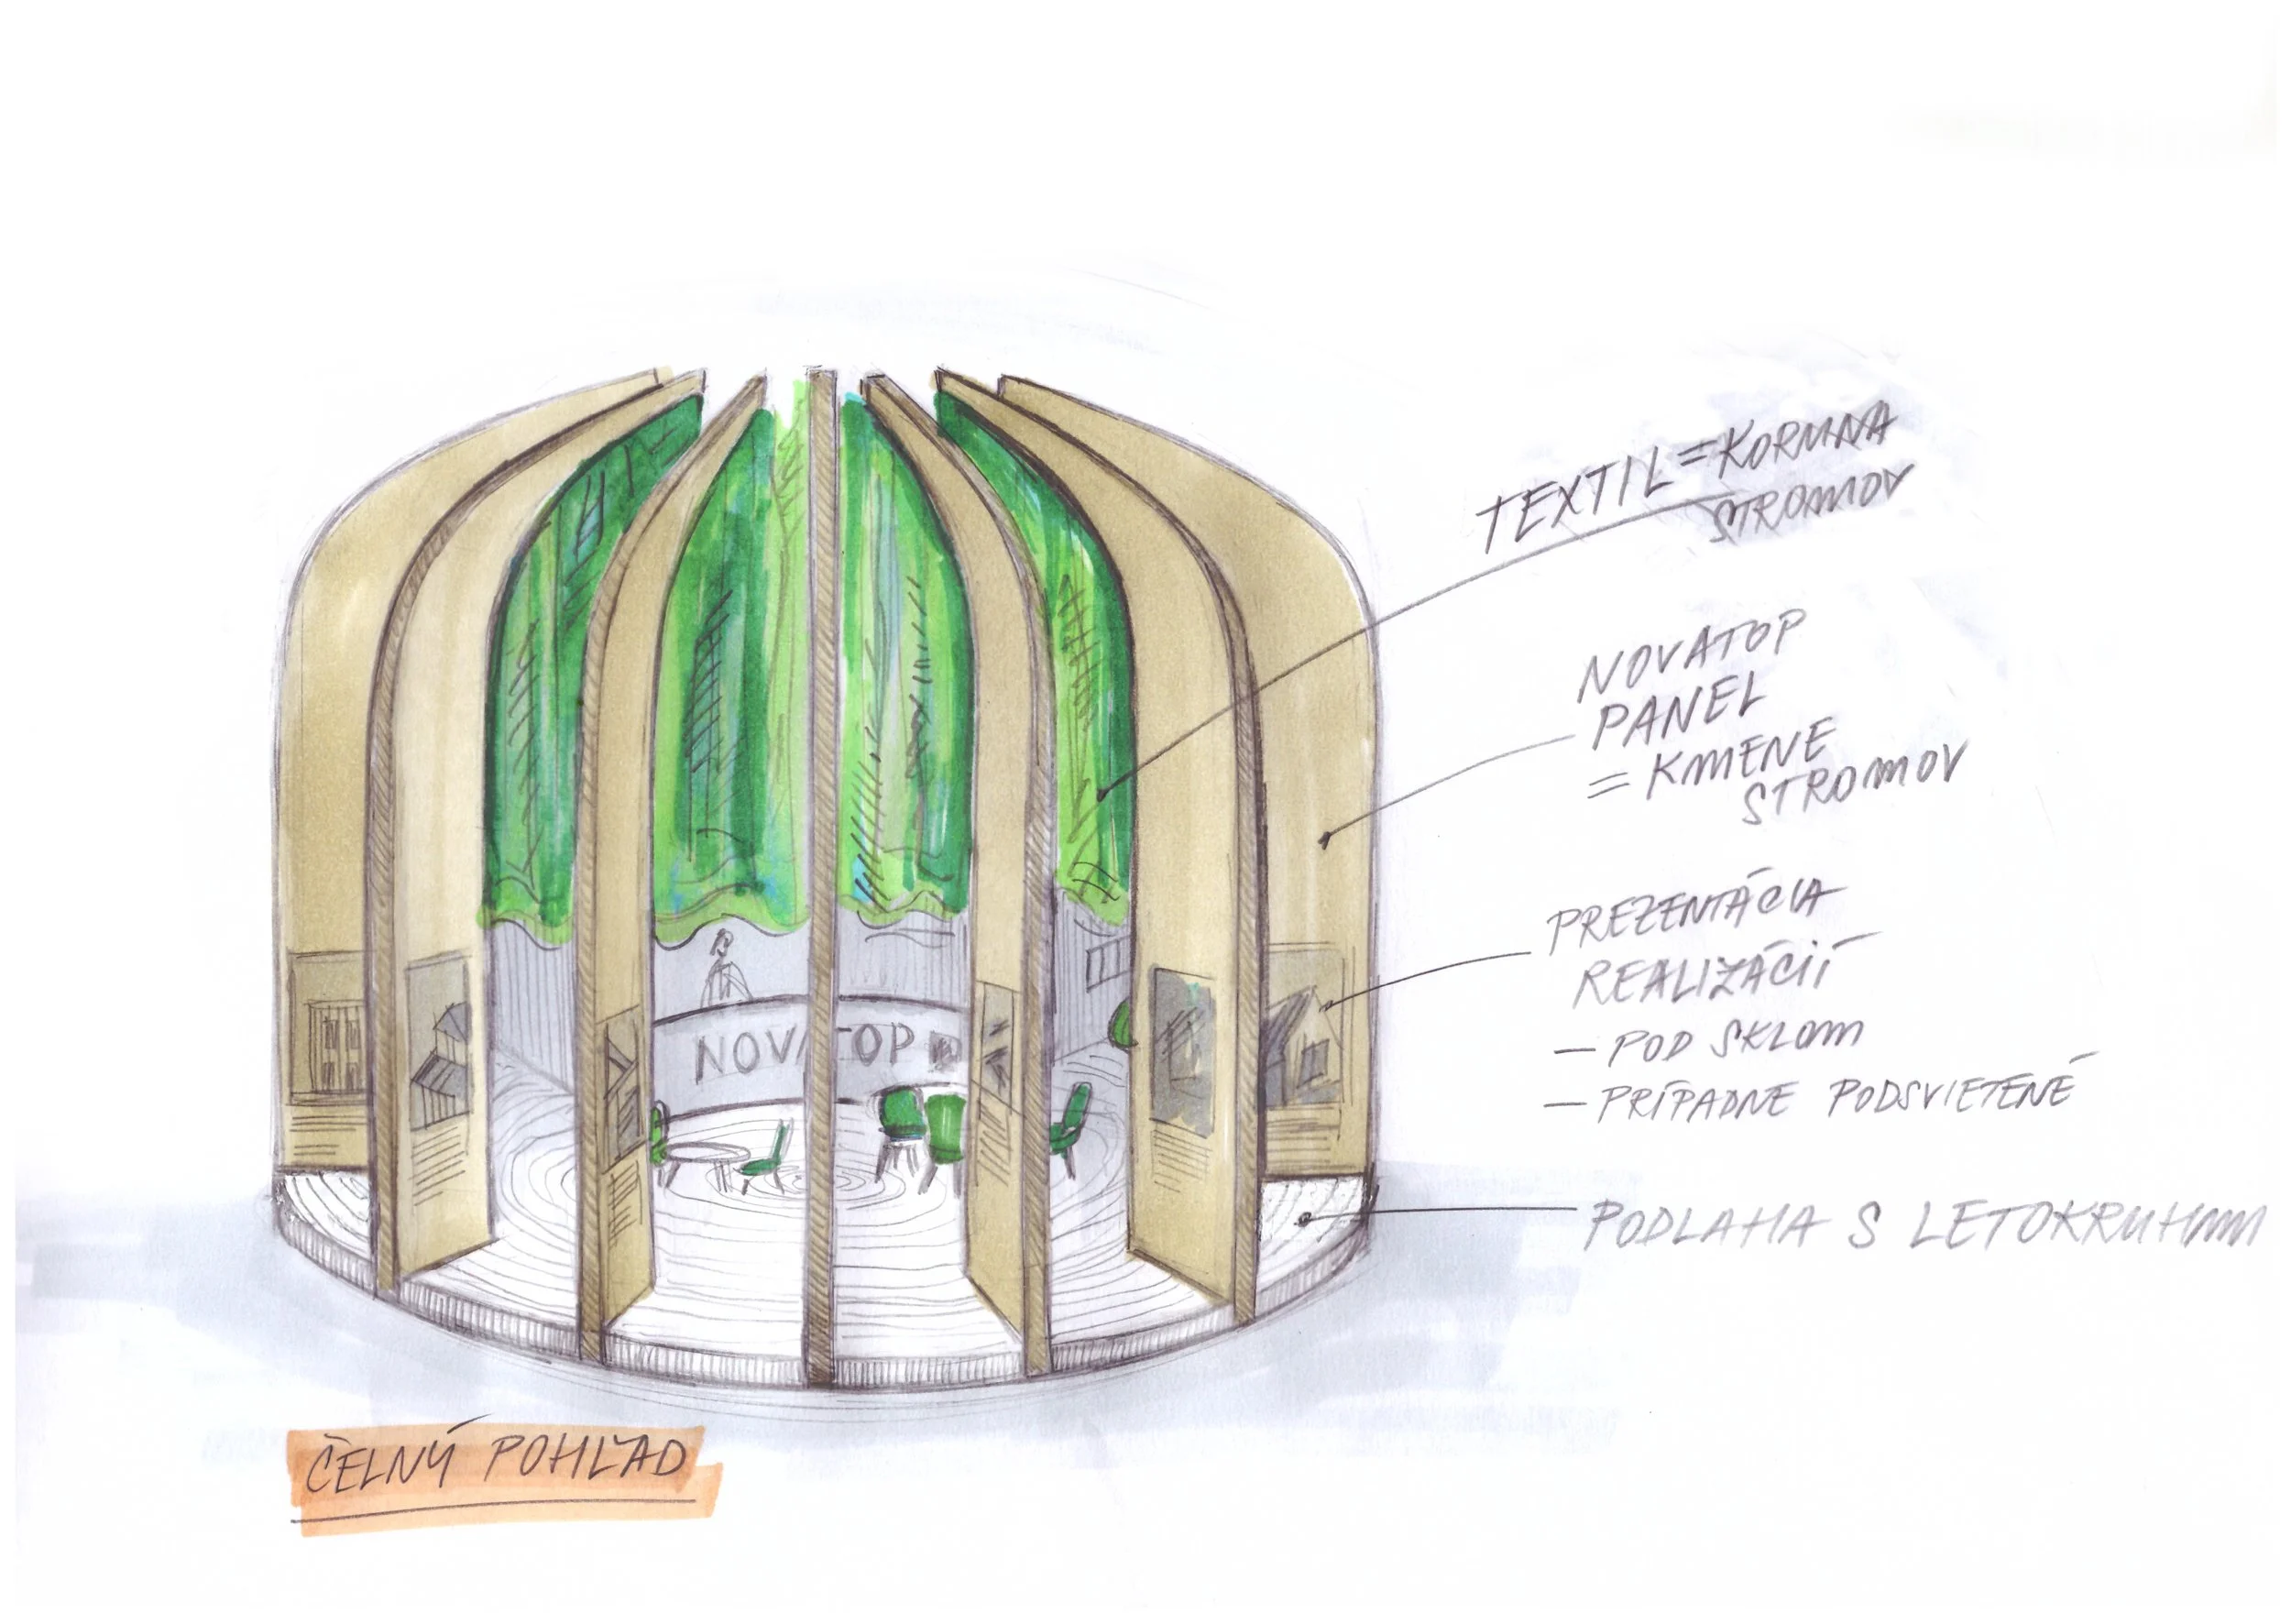 TEXTIL = KORUNA
STROMOV
NOVATOP
PANEL
= KMENE
STROMOV
PREZENTÁCIA
REALIZÁCIÍ
– POD SKLOM
– PRÍPADNE PODSVIETENÉ
NOVATOP
PODLAHA S LETOKRUHMI
ČELNÝ POHĽAD